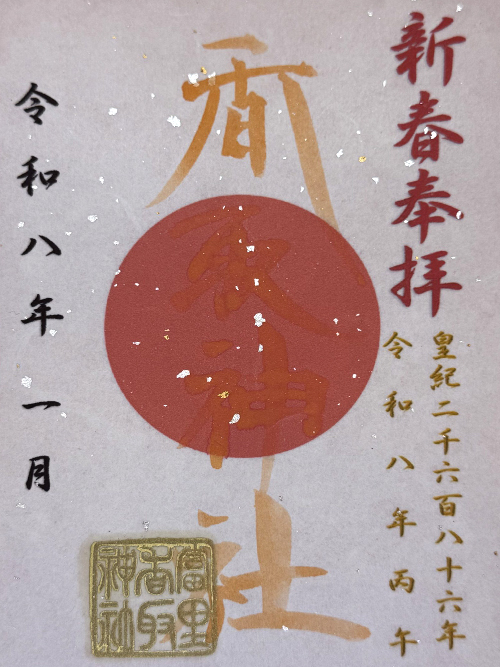 新春奉拝
皇紀二千六百八十六年
令和八年丙午
香取神社
令和八年一月
富里
香取
神社